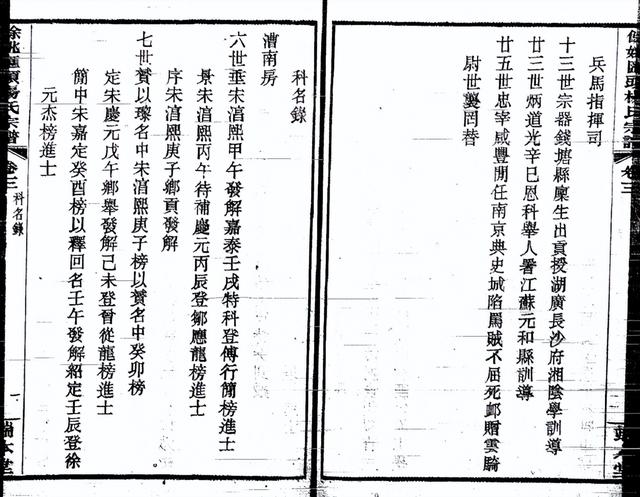 兵馬指揮司
十三世宗器錢塘縣廩生出貢授湖廣長沙府湘陰學訓導
廿三世炳道光辛巳恩科舉人署江蘇元和縣訓導
廿五世忠宰咸豐間任南京典史城陷罵賊不屈死卹贈雲騎
尉世襲罔替
卷三
科名錄
漕南房
六世垂宋淳熙甲午發解嘉泰壬戌特科登傅行簡榜進士
景宋淳熙丙午待補慶元丙辰登鄒應龍榜進士
序宋淳熙庚子鄉貢發解
七世賛以瑧名中宋淳熙庚子榜以賛名中癸卯榜
定宋慶元戊午鄉舉發解己未登曾從龍榜進士
簡中宋嘉定癸酉榜以釋回名壬午發解紹定壬辰登徐
元杰榜進士
餘姚
氏宗譜
卷三
科名錄
端本堂